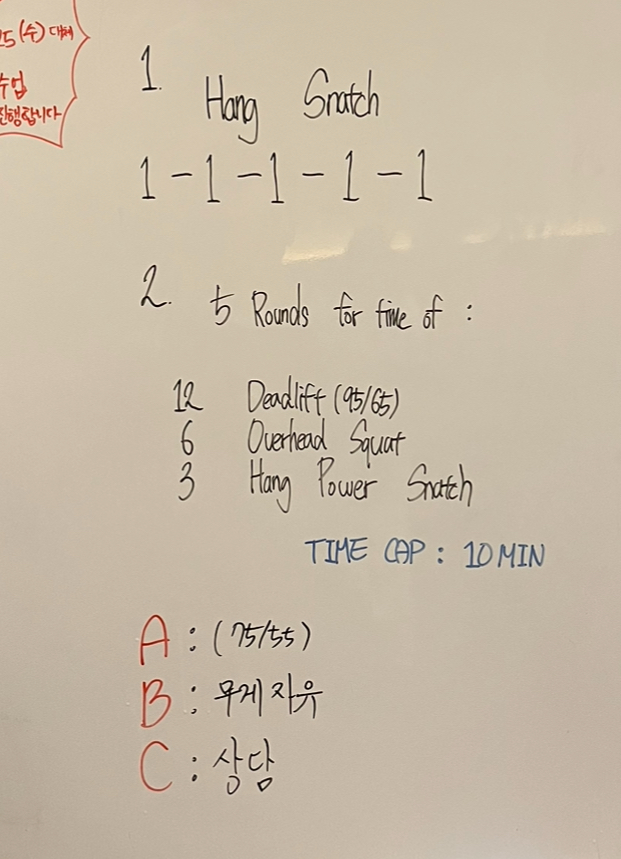 25 (수) 대체
수업
진행합니다
1. Hang Snatch
1-1-1-1-1
2. 5 Rounds for time of :
12 Deadlift (95/65)
6 Overhead Squat
3 Hang Power Snatch
TIME CAP : 10 MIN
A : (75/55)
B : 무게 자유
C : 상담